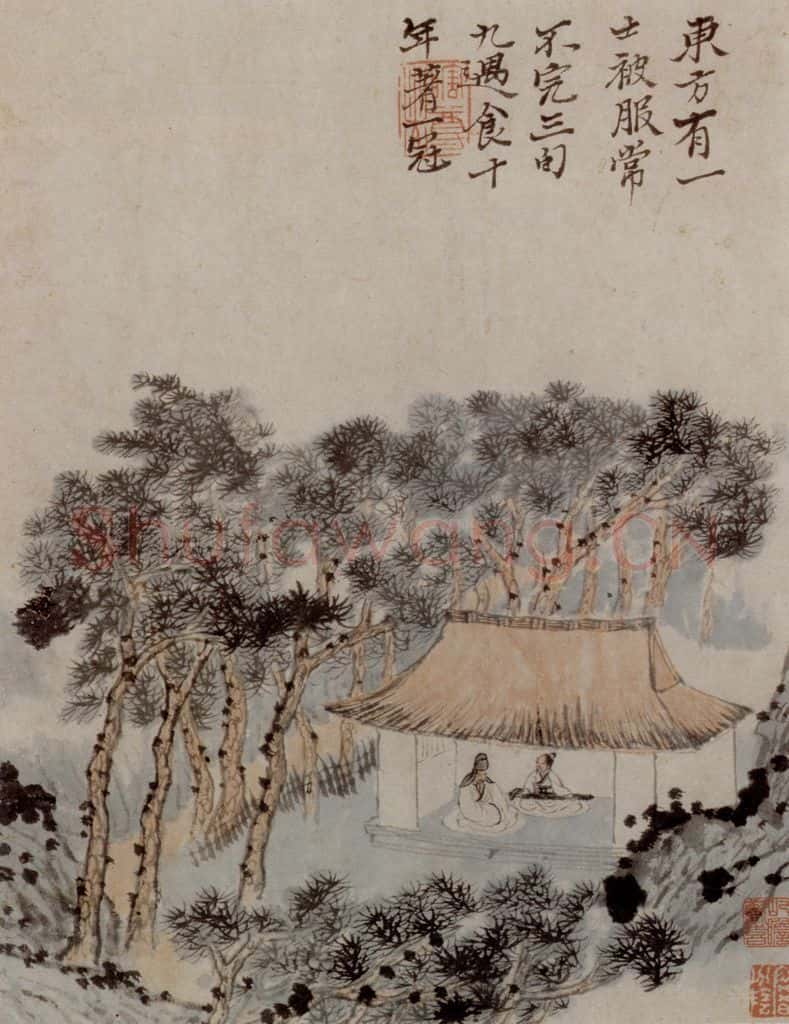 東方有一
士被服常
不完三旬
九遇食十
年著一冠
Shufawang.CN